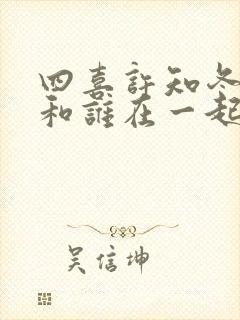 四喜許知冬
和誰在一起
吴信坤